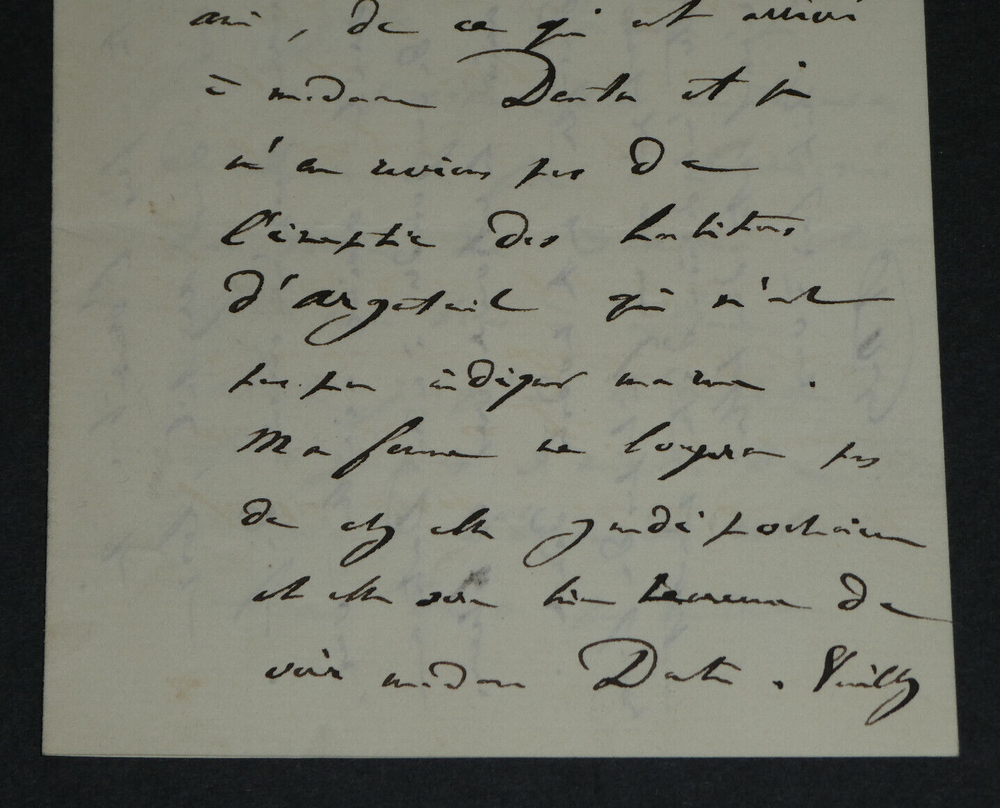 ami, de ce qui est arrivé
à madame Dentu et je
n'en reviens pas de
l'ineptie des habitans
d'argenteuil qui n'est
pas peu indigne
Ma femme ne bougera pas
de chez elle jeudi prochain
et elle sera bien heureuse de
voir madame Dentu. Veuillez